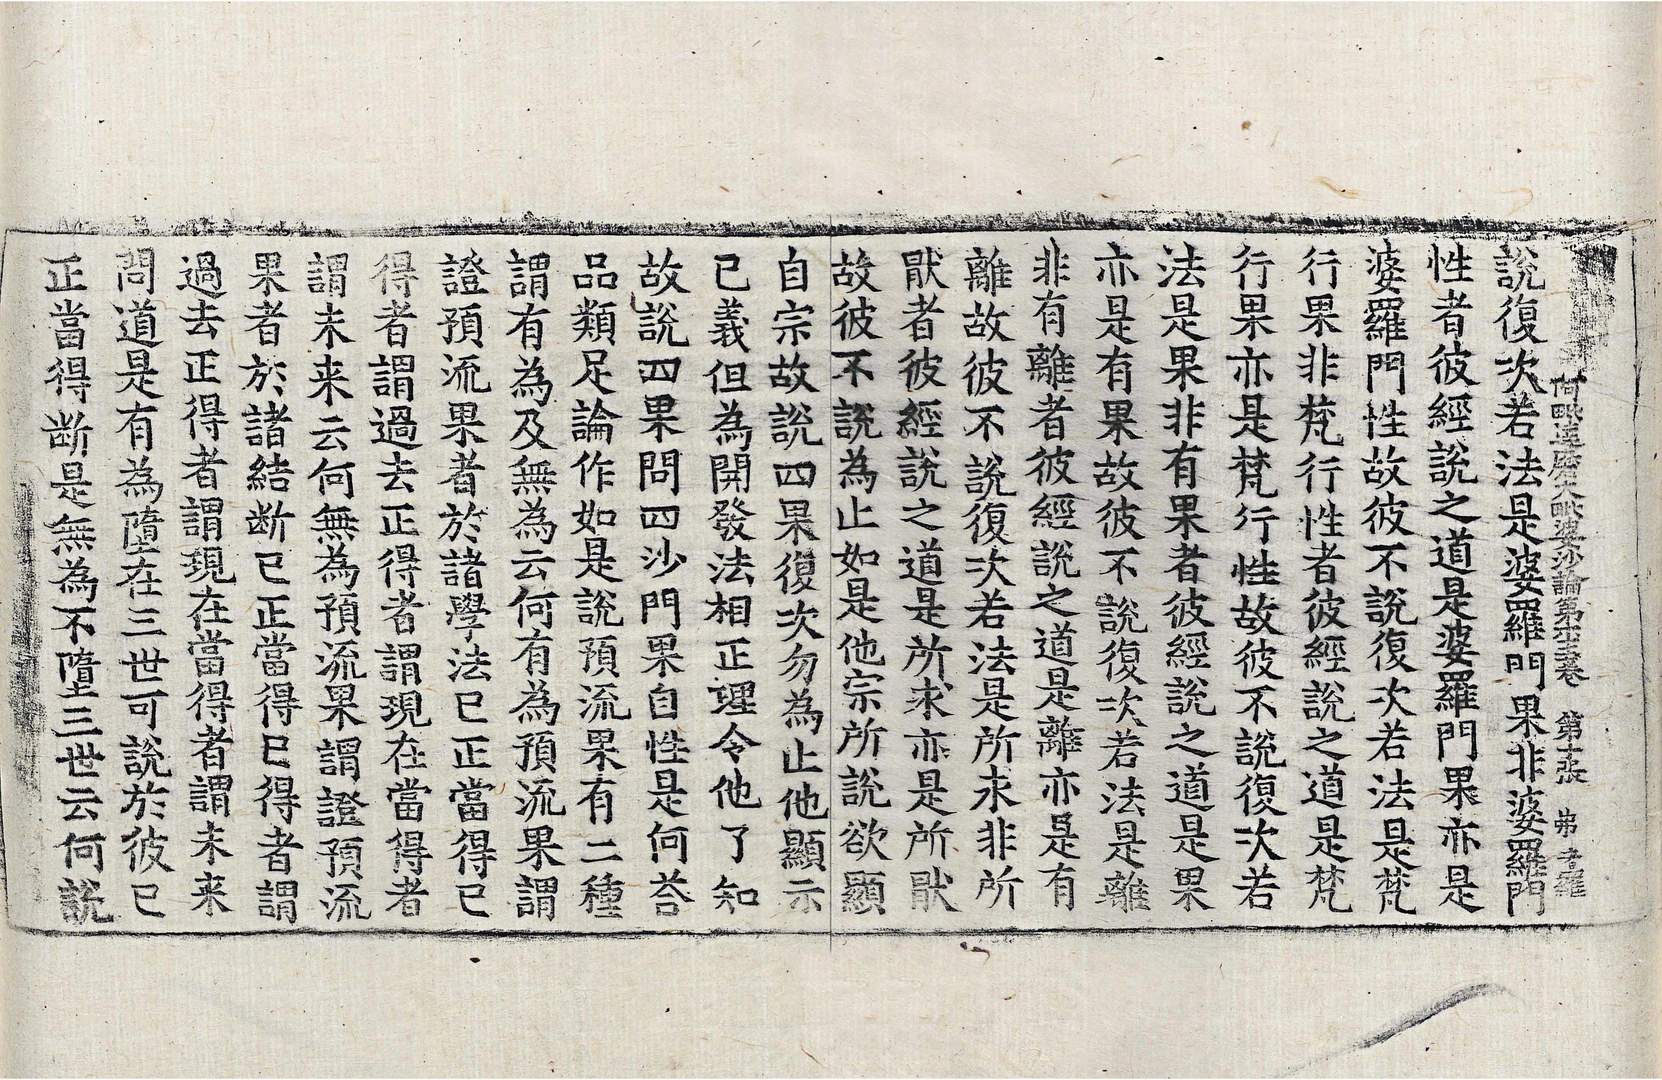 阿毗達磨大毗婆沙論第六十五卷 第十張 弟 羅
說復次若法是婆羅門果非婆羅門
性者彼經說之道是婆羅門果亦是
婆羅門性故彼不說復次若法是梵
行果非梵行性者彼經說之道是梵
行果亦是梵行性故彼不說復次若
法是果非有果者彼經說之道是果
亦是有果故彼不說復次若法是離
非有離者彼經說之道是離亦是有
離故彼不說復次若法是所求非所
猒者彼經說之道是所求亦是所猒
故彼不說為止如是他宗所說欲顯
自宗故說四果復次勿為止他顯示
已義但為開發法相正理令他了知
故說四果問四沙門果自性是何荅
品類足論作如是說預流果有二種
謂有為及無為云何有為預流果謂
證預流果者於諸學法已正當得已
得者謂過去正得者謂現在當得者
謂未来云何無為預流果謂證預流
果者於諸結断已正當得已得者謂
過去正得者謂現在當得者謂未来
問道是有為墮在三世可說於彼已
正當得断是無為不墮三世云何說